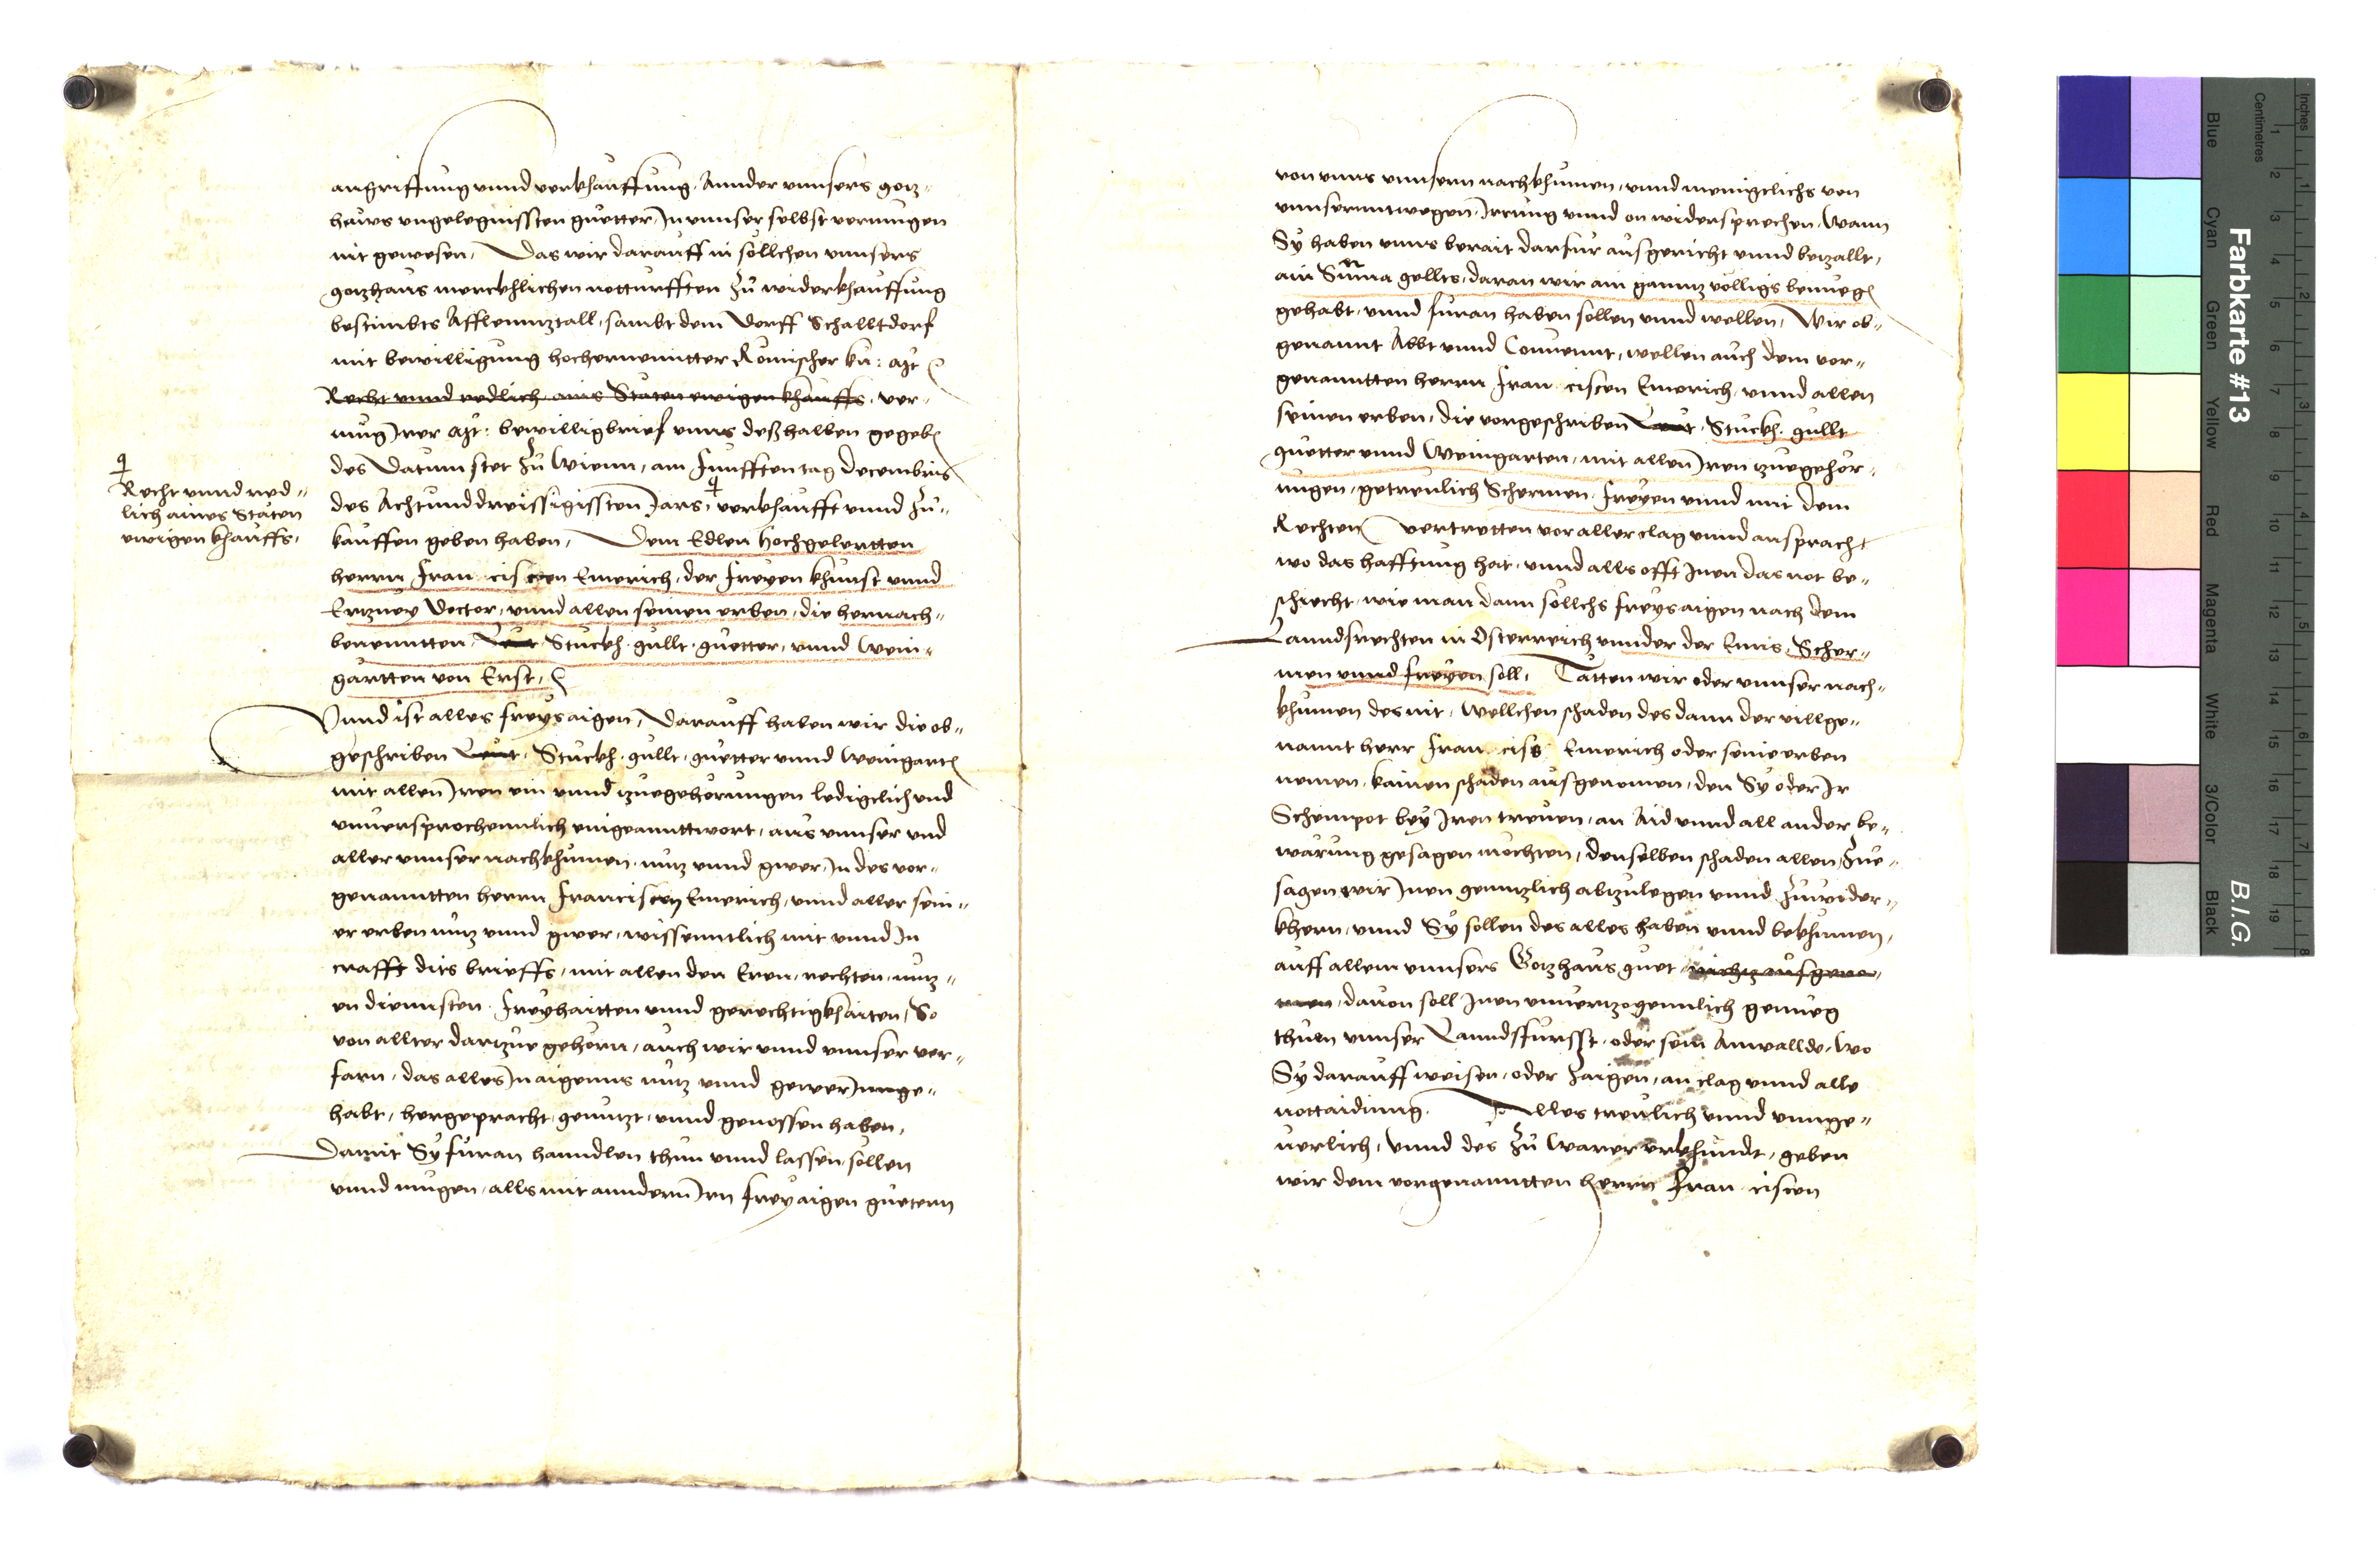 angriffung vnnd verkhauffung, Annder vnnsers goz-
hauws vngelegnissten guetter, In vnnser selbst vermugen
nit gewesen, Das wir darauff in sollchen vnnsers
gozhaus merckhlichen notturfften Zu widerkhauffung
bestimbts Afflennztall, sambt dem Dorff Schalltdorf
mit bewilligung hochernenntter Romischer ku: Mt
Recht vnnd redlich ains Staten ewigen khauffs, ver-
mug Irer Mt: bewilligbrief vnns deßhalben gegeben
des Datum stet Zu Wienn, am Funfften tag Decembris
des Achtunddreissigissten Jars, verkhaufft vnnd Zu-
kauffen geben haben, Dem Edlen Hochgelertten
herrn Francis cen Emerich, der Freyen khunst vnnd
Ertzney Doctor, vnnd allen seinen erben, die hernach-
benenntten, Leut Stuckh, gullt, guetter, vnnd Wein-
gartten von Erst,
Recht vnnd red-
lich aines Staten
ewigen khauffs,
Vnnd ist alles freys aigen, Darauff haben wir die ob-
geschriben Leut, Stuckh, gullt, guetter vnnd Weingarten
mit allen Iren ein vnnd tzuegehorungen lediglich vnd
vnuersprochennlich eingeannttwort, aus vnnser vnd
aller vnnser nachkhumen, nutz vnnd gwer, In des vor-
genanntten herrn Franciscen Emerich, vnnd aller sein-
er erben nutz vnnd gwer, wissenntlich mit vnnd In
crafft dits brieffs, mit allen den Eren, rechten, nutz-
en diennsten, Freyhaitten vnnd gerechtigkhaiten, So
von allter dartzue gehorn, auch wir vnnd vnnser vor-
farn, das alles In aigenns nutz vnnd gewer Innge-
habt, hergepracht, genutzt, vnnd genossen haben,
Damit Sy furan hanndlen thun vnnd lassen sollen
vnnd mugen, alls mit anndern Irn frey aigen guetern
von vnns vnnsern nachkhumen, vnnd menigclichs von
vnnserntwegen, Irrung vnnd on widersprechen, Wann
Sy haben vnns berait darfur ausgericht vnnd betzallt,
ain Suma gellts, daran wir ain ganntz volligs benuegen
gehabt, vnnd furan haben sollen vnnd wellen, Wir ob-
genannt Abbt vnnd Conuennt, wellen auch dem vor-
genanntten herrn Francis cen Emerich, vnnd allen
seinen erben, die vorgeschriben Leut, Stuckh, gullt
guetter vnnd Weingarten, mit allen Iren tzuegehor-
ungen, getreulich Schermen, Freyen vnnd mit dem
Rechten vertretten vor aller clag vnnd ansprach,
wo das hafftung hat, vnnd alls offt Inen das not be-
schiecht, wie man dann sollchs freys aigen nach dem
Lanndsrechten in Osterreich vnnder der Enns, Scher-
men vnnd Freyen soll, Tatten wir oder vnnser nach-
khumen des nit, Wellchen schaden des dann der villge-
nannt herr Franciss Emerich oder seine erben
nemen, kainen schaden ausgenomen, den Sy oder Ir
Scheinpot bey Iren treuen, an Aid vnnd all ander be-
warung gesagen mochten, denselben schaden allen, Zue-
sagen wir Inen genntzlich abtzulegen vnnd Zuwider-
khern, vnnd Sy sollen des alles haben vnnd bekhumen,
auff allem vnnsers Gozhaus guet, nichtz ausgeno-
men, dauon soll Inen vnuertzogennlich genueg
thuen vnnser Lanndsfursst, oder sein Anwallde, Wo
Sy darauff weisen, oder Zaigen, an clag vnnd alle
nottaidinng. Alles treulich vnnd vnnge-
uerlich, Vnnd des Zu Warer vrkhundt, geben
wir dem vorgenanntten herrn Francis cen
Farbkarte #13
B.I.G.
Inches
Centimetres
Blue
Cyan
Green
Yellow
Red
Magenta
White
3/Color
Black